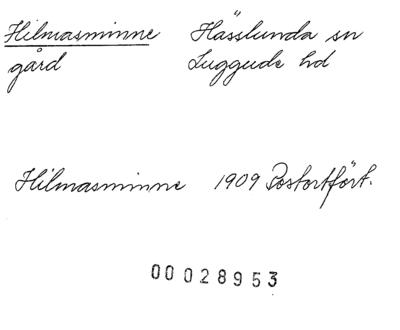 Hilmasminne Hässlunda sn
gård Luggude hd
Hilmasminne 1909 Postortfört.
00028953